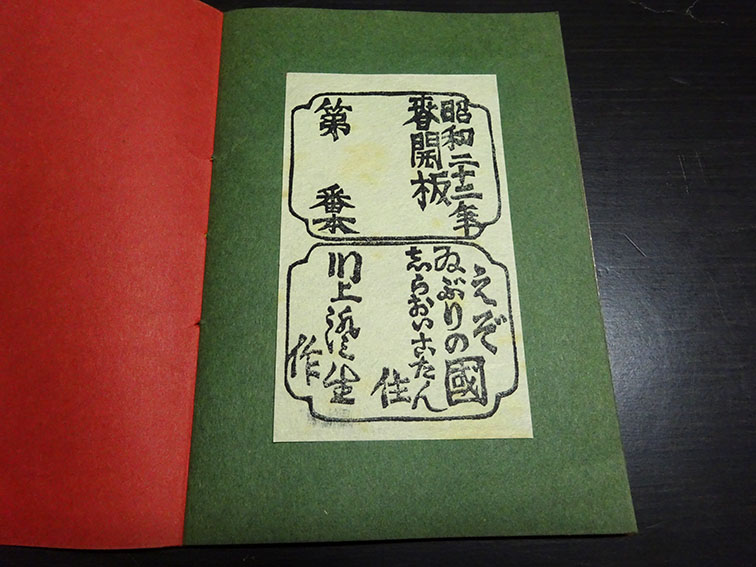 昭和二十二年
春開板
第　番本
えぞ
ゐぶりの國
志らおいこたん
住
川上澄生
作